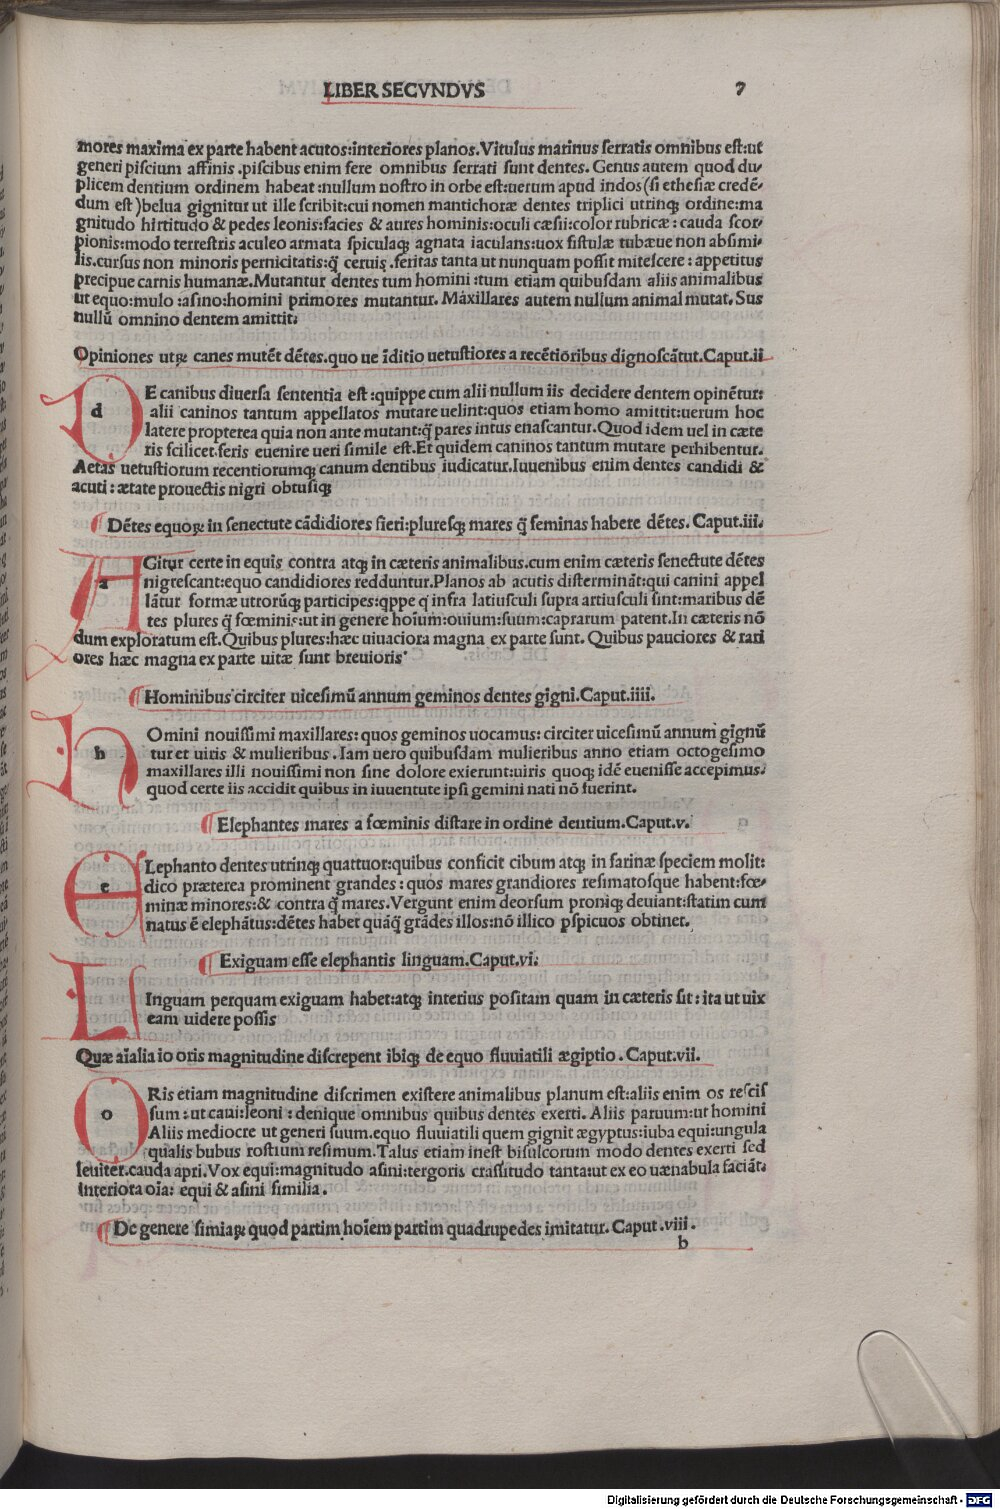 LIBER SECVNDVS 7
mores maxima ex parte habent acutos:interiores planos.Vitulus marinus serratis omnibus est:ut
generi piscium affinis .piscibus enim fere omnibus serrati sunt dentes. Genus autem quod du-
plicem dentium ordinem habeat :nullum nostro in orbe est:uerum apud indos (si ethesiæ credē-
dum est )belua gignitur ut ille scribit:cui nomen mantichoræ dentes triplici utrinq; ordine:ma
gnitudo hirtitudo & pedes leonis:facies & aures hominis:oculi cæsii:color rubricæ : cauda scor-
pionis:modo terrestris aculeo armata spiculaq; agnata iaculans:uox fistulæ tubæue non absimi-
lis.cursus non minoris pernicitatis:q̄ ceruis .feritas tanta ut nunquam possit mitescere : appetitus
precipue carnis humanæ.Mutantur dentes tum homini :tum etiam quibusdam aliis animalibus
ut equo:mulo :asino:homini primores mutantur. Maxillares autem nullum animal mutat. Sus
nullū omnino dentem amittit:
Opiniones utꝝ canes mutēt dētes.quo ue īditio uetustiores a recētioribus dignoscātut.Caput.ii
d E canibus diuersa sententia est :quippe cum alii nullum iis decidere dentem opinētur:
alii caninos tantum appellatos mutare uelint:quos etiam homo amittit:uerum hoc
latere propterea quia non ante mutant:q̄ pares intus enascantur.Quod idem uel in cæte
ris scilicet.feris euenire ueri simile est.Et quidem caninos tantum mutare perhibentur.
Aetas uetustiorum recentiorumq; canum dentibus iudicatur.Iuuenibus enim dentes candidi &
acuti : ætate prouectis nigri obtusiq;
Dētes equoꝝ in senectute cādidiores fieri:pluresq; mares q̄ feminas habere dētes. Caput.iii.
a Gitur certe in equis contra atq; in cæteris animalibus.cum enim cæteris senectute dētes
nigrescant:equo candidiores redduntur.Planos ab acutis distermināt:qui canini appel
lātur formæ utrorūq; participes:qppe q infra latiusculi supra artiusculi sint:maribus dē
tes plures q̄ fœminis:ut in genere hoīum:ouium:suum:caprarum patent.In cæteris nō
dum exploratum est.Quibus plures:hæc uiuaciora magna ex parte sunt. Quibus pauciores & rari
ores hæc magna ex parte uitæ sunt breuioris·
Hominibus circiter uicesimū annum geminos dentes gigni.Caput.iiii.
h Omini nouissimi maxillares: quos geminos uocamus: circiter uicesimū annum gignū
tur et uiris & mulieribus . Iam uero quibusdam mulieribus anno etiam octogesimo
maxillares illi nouissimi non sine dolore exierunt:uiris quoq; idē euenisse accepimus.
quod certe iis accidit quibus in iuuentute ipsi gemini nati nō fuerint.
Elephantes mares a fœminis distare in ordine dentium.Caput.v.
e Lephanto dentes utrinq; quattuor:quibus conficit cibum atq; in farinæ speciem molit:
dico præterea prominent grandes : quos mares grandiores resimatosque habent:fœ-
minæ minores:& contra q̄ mares.Vergunt enim deorsum proniq; deuiant:statim cum
natus ē elephātus:dētes habet quāq̄ grādes illos:nō illico pspicuos obtinet.
Exiguam esse elephantis linguam.Caput.vi.
Inguam perquam exiguam habet:atq; interius positam quam in cæteris sit : ita ut uix
eam uidere possis
Quæ aīalia io oris magnitudine discrepent ibiq; de equo fluuiatili ægiptio . Caput.vii.
o Ris etiam magnitudine discrimen existere animalibus planum est:aliis enim os rescis
sum :ut caui:leoni : denique omnibus quibus dentes exerti. Aliis paruum:ut homini
Aliis mediocre ut generi suum.equo fluuiatili quem gignit ægyptus:iuba equi:ungula
qualis bubus rostrum resimum. Talus etiam inest bisulcorum modo dentes exerti sed
leuiter.cauda apri. Vox equi:magnitudo asini:tergoris crassitudo tanta:ut ex eo uænabula faciāt.
interiora oīa: equi & asini similia .
De genere simiaꝝ quod partim hoīem partim quadrupedes imitatur. Caput .viii .
b
Digitalisierung gefördert durch die Deutsche Forschungsgemeinschaft - DFG